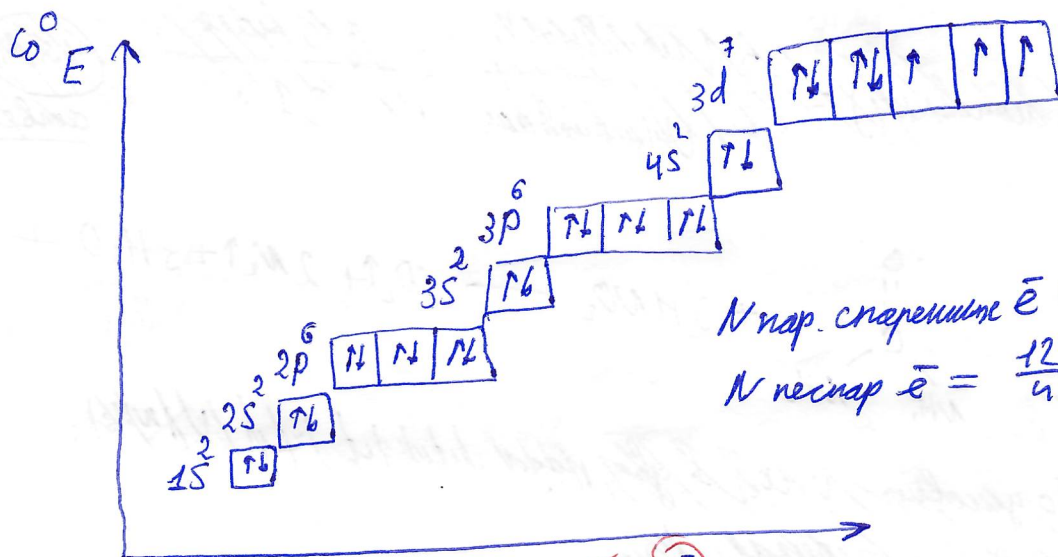 Co⁰ E
3d⁷ ↑↓ ↑↓ ↑ ↑ ↑
4s² ↑↓
3p⁶ ↑↓ ↑↓ ↑↓
3s² ↑↓
2p⁶ ↑↓ ↑↓ ↑↓
2s² ↑↓
1s² ↑↓
N пар. спаренных ē
N неспар ē = 12/4